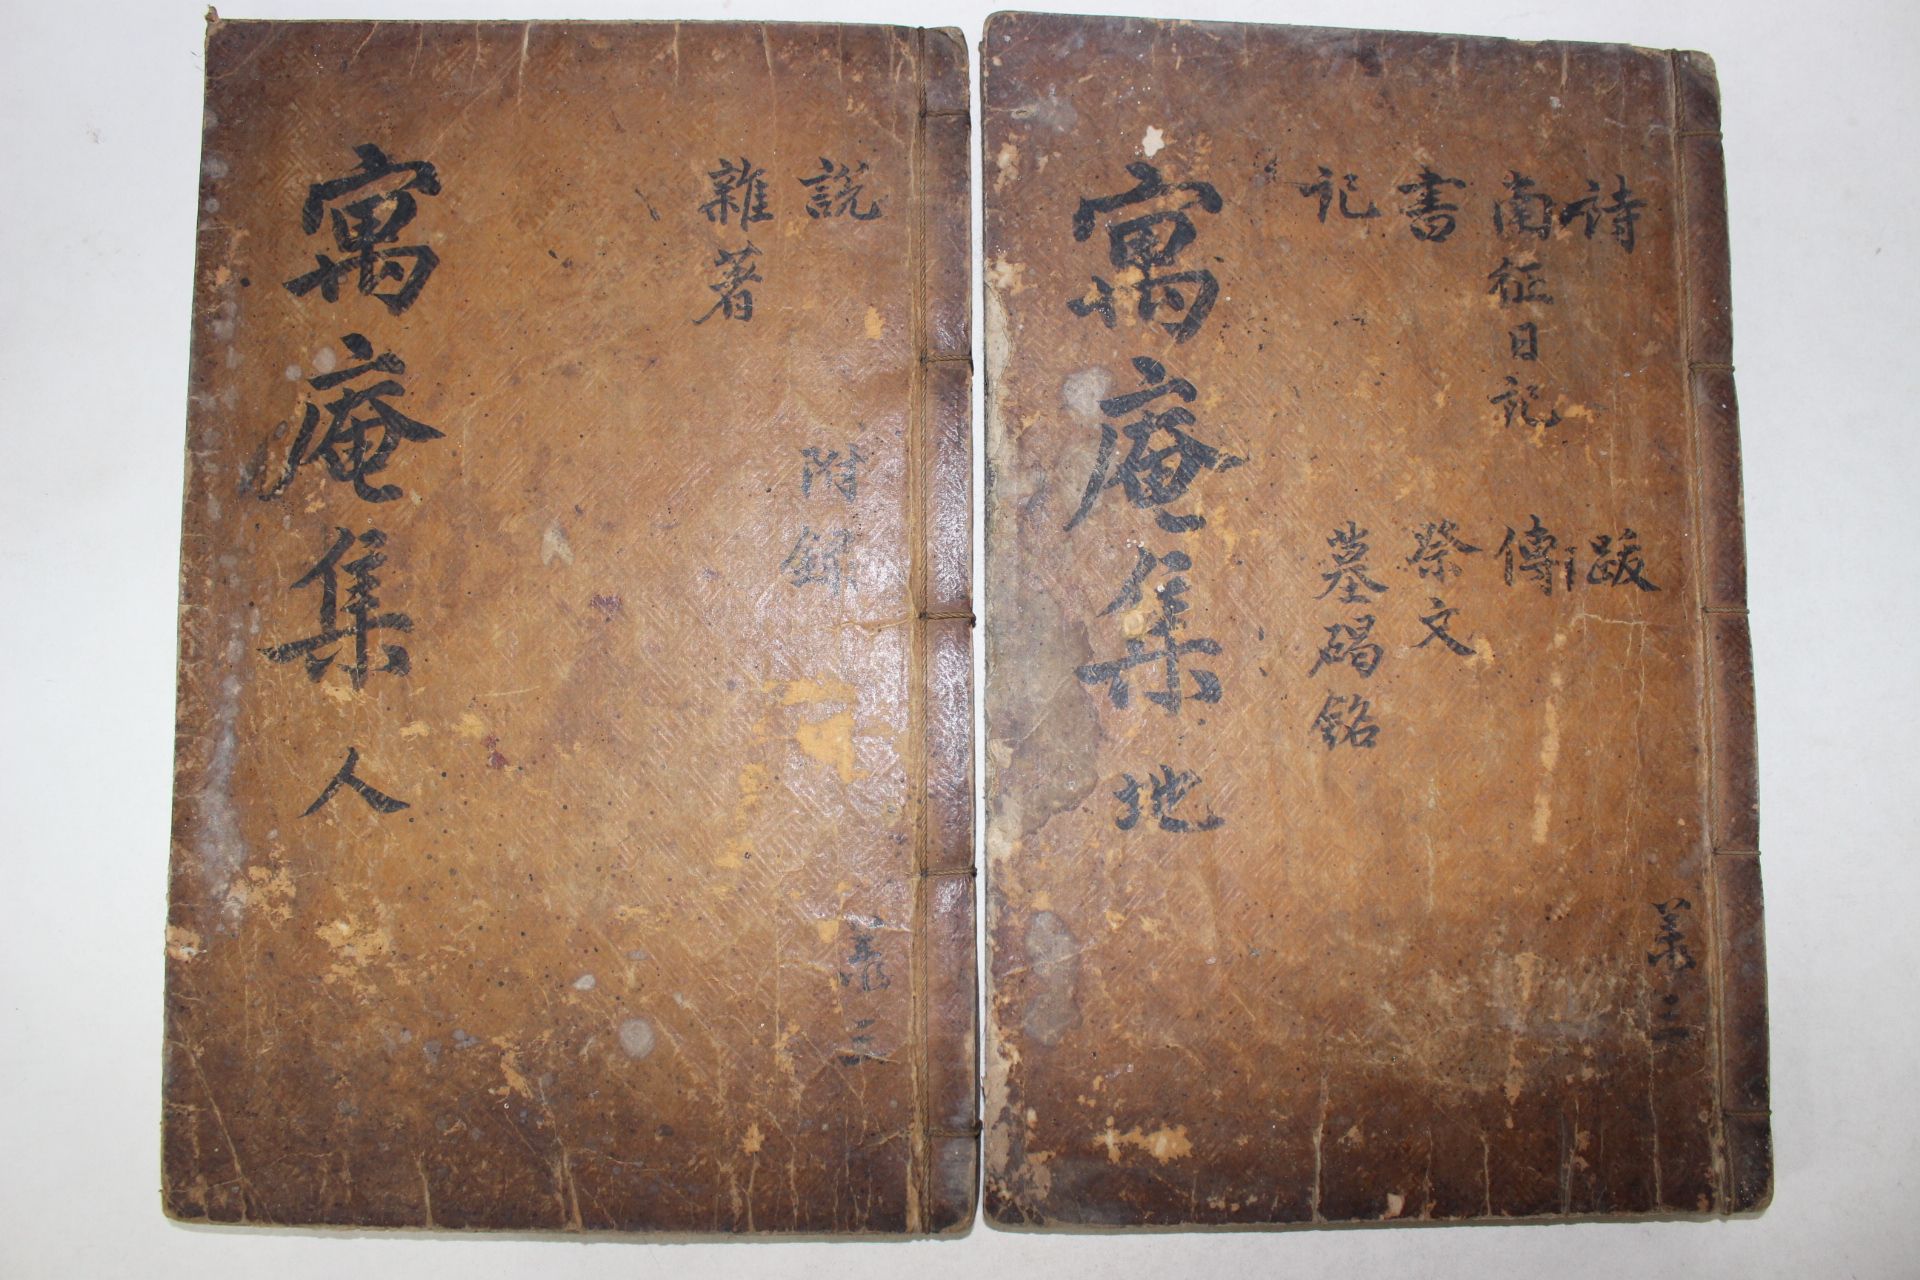 詩
南征日記
書
記
跋
傳
祭文
墓碣銘
寓庵集 地
說
雜著
附錄
寓庵集 人